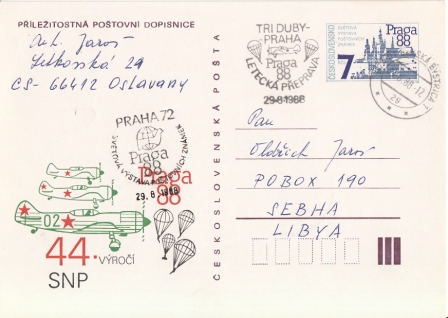 PŘÍLEŽITOSTNÁ POŠTOVNÍ DOPISNICE
A. L. Jaroš
29
CS-66412 Oslavany
ČESKOSLOVENSKÁ POŠTA
TRI DUBY-
PRAHA
Praga
88
LETECKÁ PŘEPRAVA
29.8.1988
ČESKOSLOVENSKO
SVĚTOVÁ
VÝSTAVA
POŠTOVNÍCH
ZNÁMEK
Praga
88
7
PRAHA 72
Praga
88
SVĚTOVÁ VÝSTAVA POŠTOVNÍCH ZNÁMEK
29.8.1988
Praga
88
02
44. VÝROČÍ
SNP
Pan
Oldřich Jaroš
POBOX 190
SEBHA
LIBYA